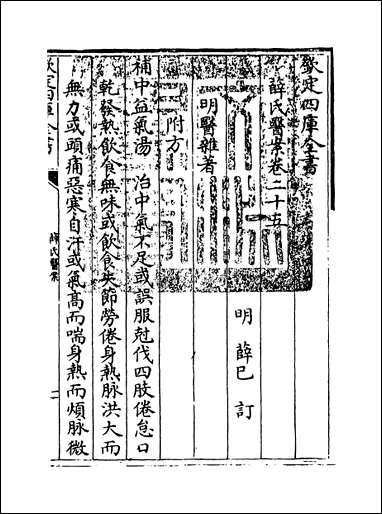 欽定四庫全書
薛氏醫案卷二十五
明 薛已 訂
明醫雜著
附方
補中益氣湯 治中氣不足或誤服尅伐四肢倦怠口
乾發熱飲食無味或飲食失節勞倦身熱脉洪大而
無力或頭痛惡寒自汗或氣高而喘身熱而煩脉微
欽定四庫全書
薛氏醫案